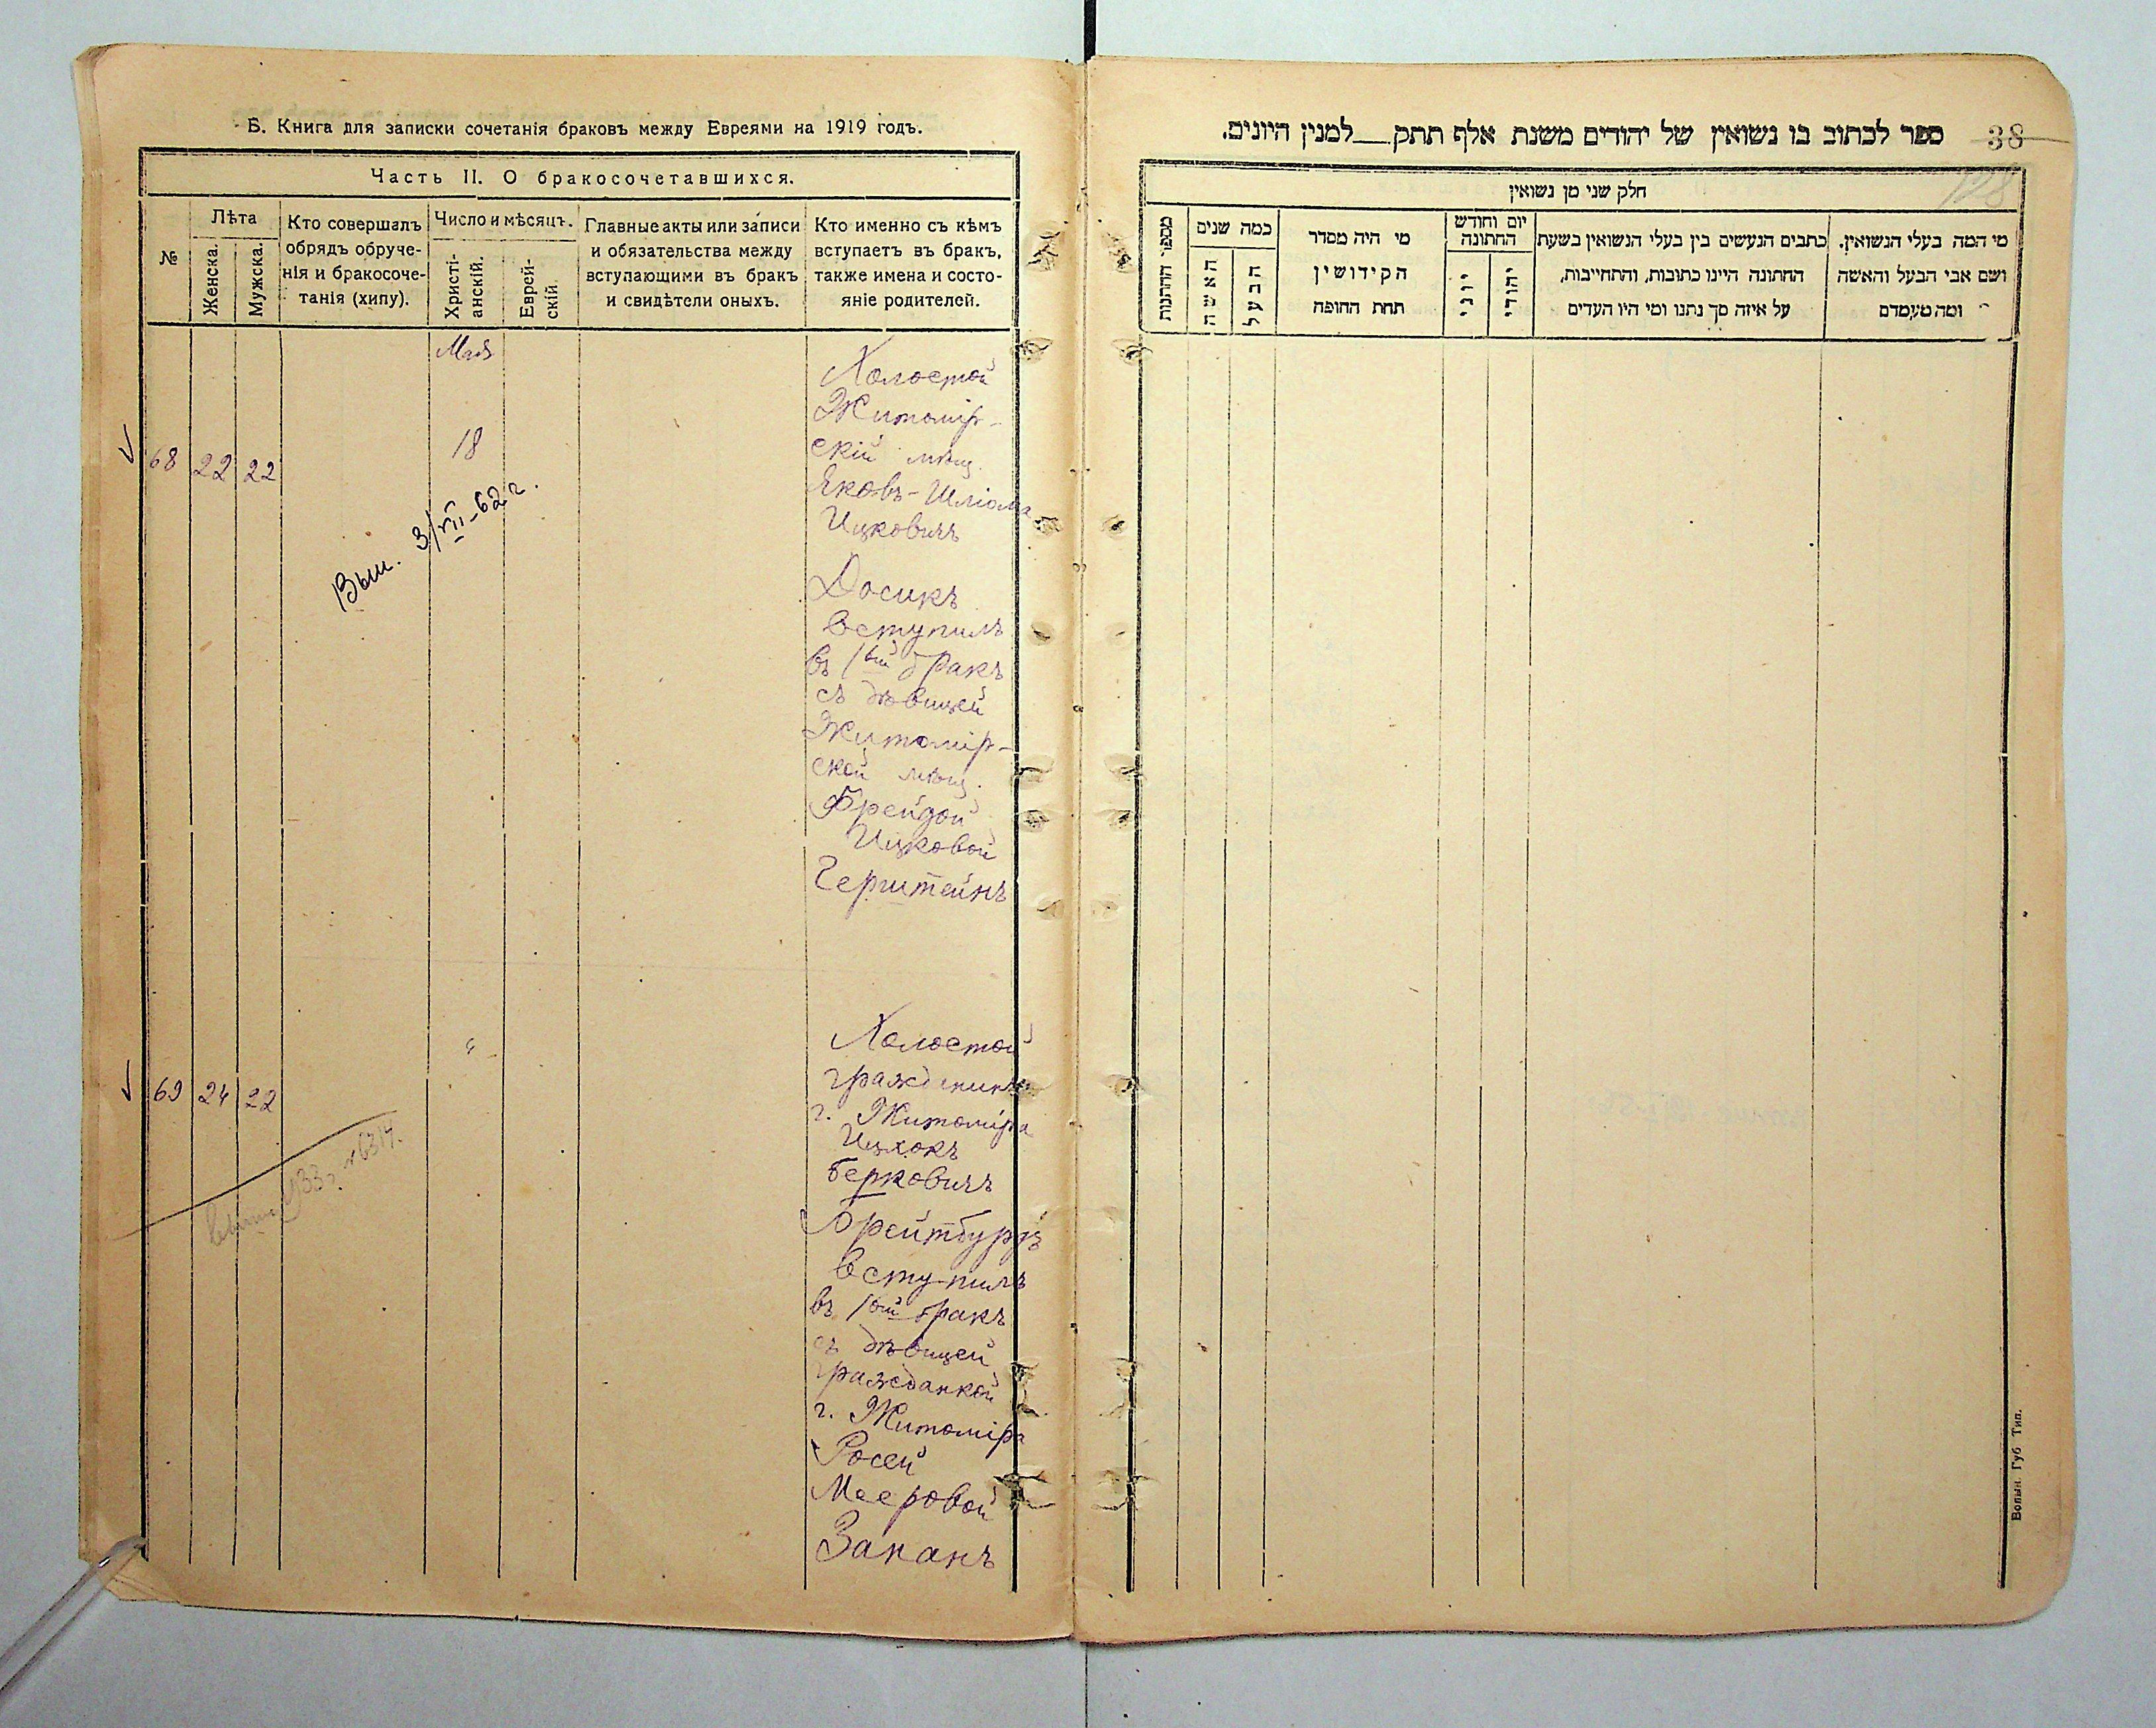 Б. Книга для записки сочетанія браковъ между Евреями на 1919 годъ.
Часть II. О бракосочетавшихся.
№
Лѣта
Женска.
Мужска.
Кто совершалъ
обрядъ обруче-
нія и бракосоче-
танія (хипу).
Число и мѣсяцъ.
Христі-
анскій.
Еврей-
скій.
Главные акты или записи
и обязательства между
вступающими въ бракъ
и свидѣтели оныхъ.
Кто именно съ кѣмъ
вступаетъ въ бракъ,
также имена и состо-
яніе родителей.
Май
68 22 22
18
Выш. 3/VII-62 г.
Холостой
Житомір-
скій мѣщ.
Яковъ-Шліома
Ицковичъ
Досикъ
вступилъ
въ 1ый бракъ
съ дѣвицей
Житомір-
ской мѣщ.
Фрейдой
Ицковой
Герштейнъ
69 24 22
"
Холостой
гражданинъ
г. Житоміра
Ицхокъ
Берковичъ
Брейтбурдъ
вступилъ
въ 1ый бракъ
съ дѣвицей
гражданкой
г. Житоміра
Росей
Мееровой
Запанъ
38
128
ספר לכתוב בו נשואין של יהודים משנת אלף תתק__למנין היונים.
חלק שני מן נשואין
מספר החתונות
כמה שנים
האשה
הבעל
מי היה מסדר
הקידושין
תחת החופה
יום וחודש
החתונה
יוני
יהודי
כתבים הנעשים בין בעלי הנשואין בשעת
החתונה היינו כתובות, והתחייבות,
על איזה סך נתנו ומי היו העדים
מי המה בעלי הנשואין.
ושם אבי הבעל והאשה
ומה מעמדם
Волын. Губ Тип.